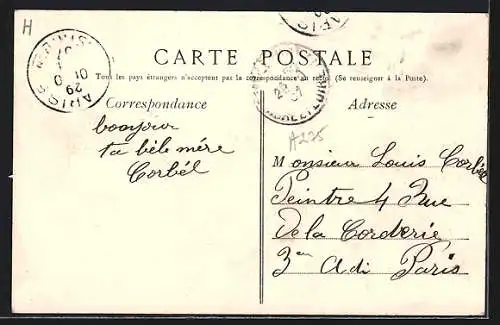 H
CARTE POSTALE
Tous les pays étrangers n'acceptent pas la correspondance au recto (Se renseigner à la Poste).
Correspondance
Adresse
boonjour
ta bèle mére
Corbél
A225
Monsieur Louis Corbél
Peintre 4 Rue
De la Corderie
3e Adi Paris